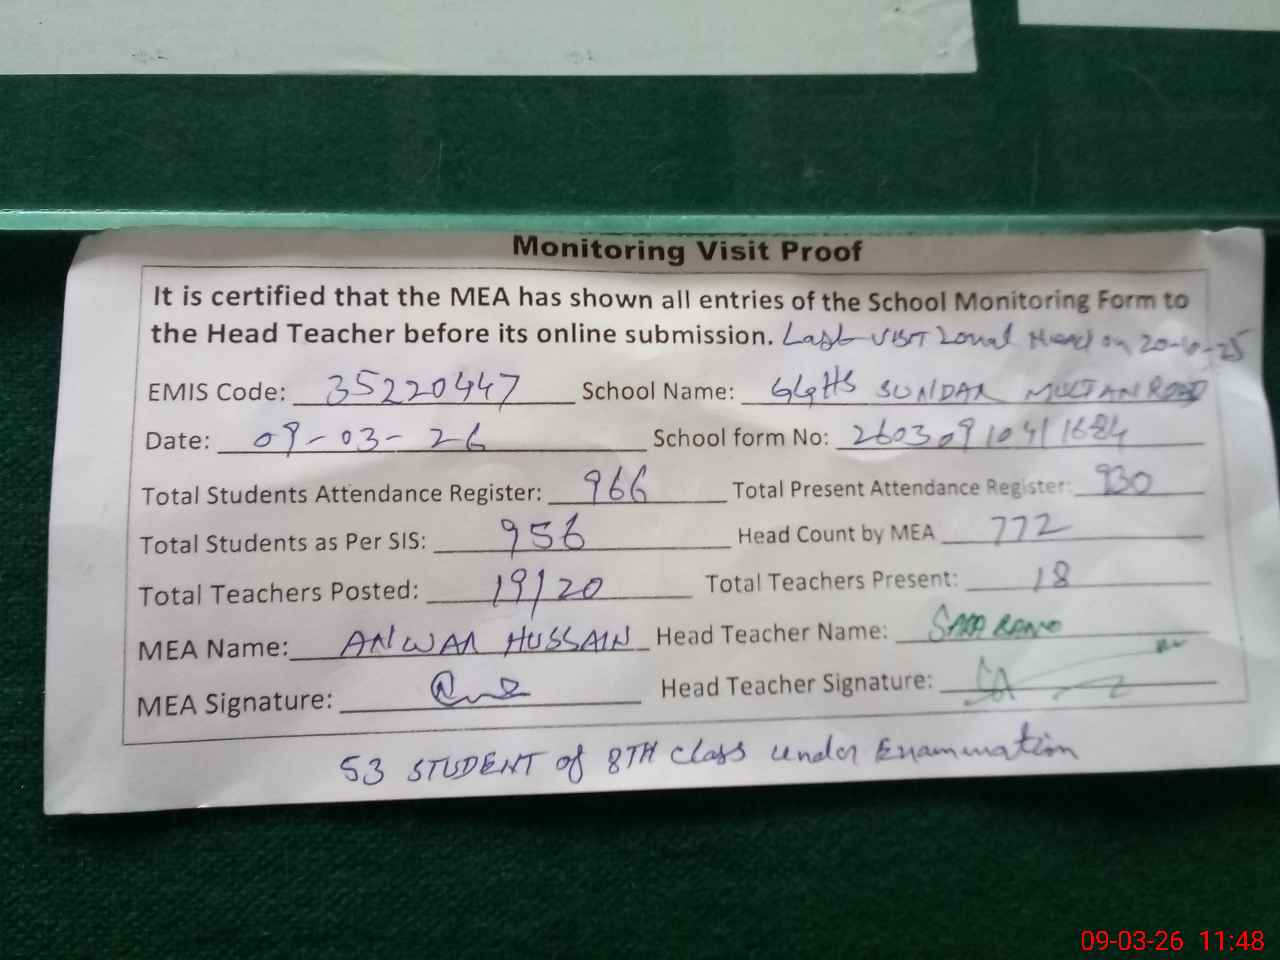 Monitoring Visit Proof
It is certified that the MEA has shown all entries of the School Monitoring Form to
the Head Teacher before its online submission. Last VISIT Zonal Head on 20-10-25
EMIS Code: 35220447 School Name: GGHS SUNDAR MULTAN ROAD
Date: 09-03-26 School form No: 26030910411684
Total Students Attendance Register: 966 Total Present Attendance Register: 930
Total Students as Per SIS: 956 Head Count by MEA 772
Total Teachers Posted: 19/20 Total Teachers Present: 18
MEA Name: ANWAR HUSSAIN Head Teacher Name: SARA BANO
MEA Signature: Head Teacher Signature:
53 STUDENT of 8TH class under Examination
09-03-26 11:48